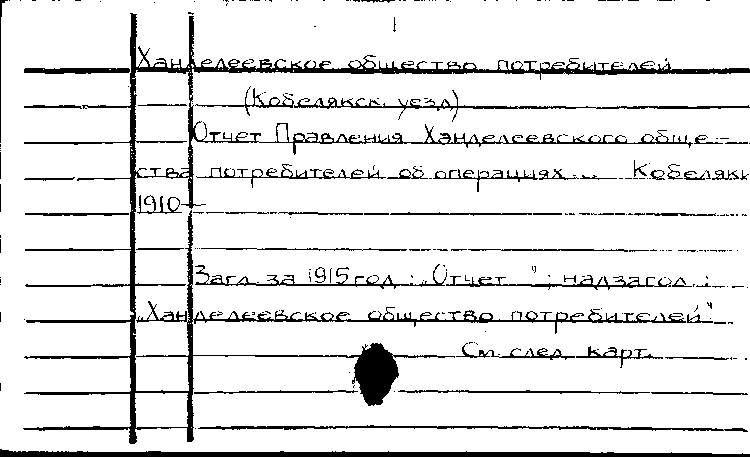 Ханделеевское общество потребителей
(Кобелякск. уезд)
Отчет Правления Ханделеевского обще-
ства потребителей об операциях... Кобеляки
1910—
Загл. за 1915 год: „Отчет "; надзагол.:
„Ханделеевское общество потребителей"
См. след. карт.